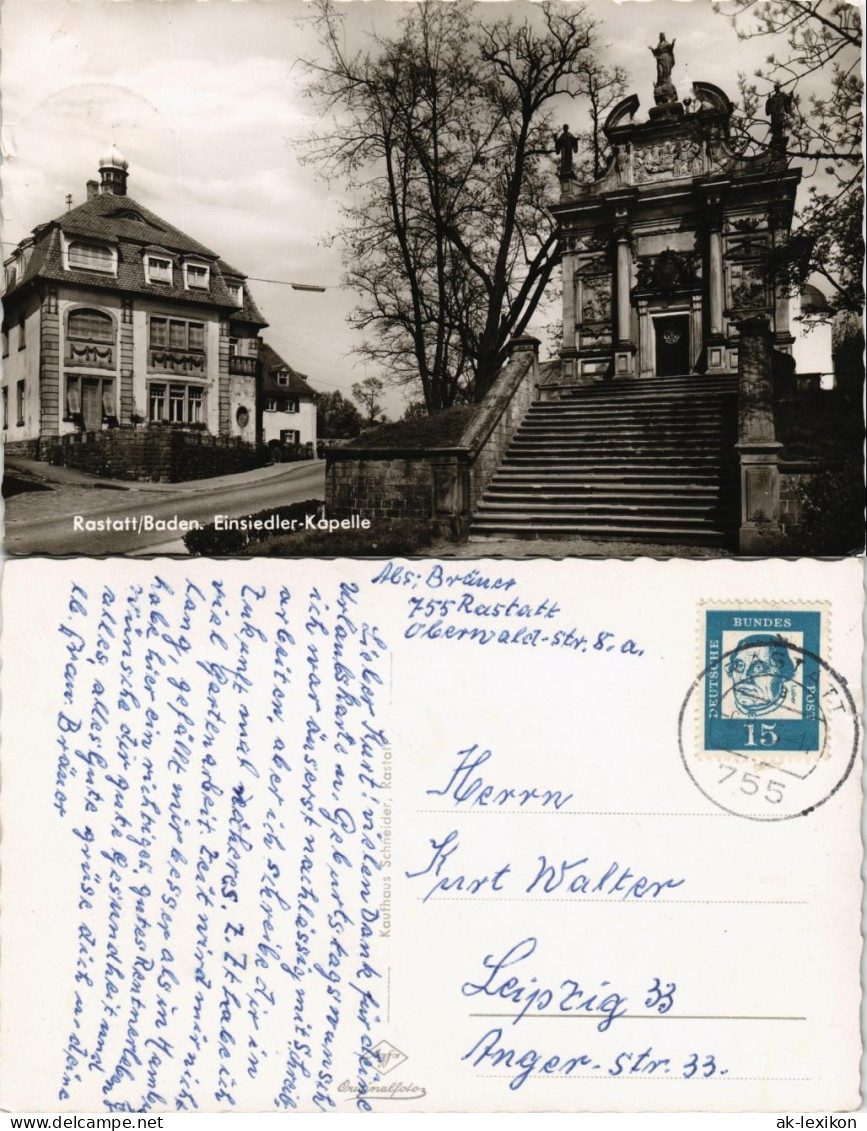 Rastatt/Baden. Einsiedler-Kapelle
Abs; Bräuer
755 Rastatt
Oberwald-str. 8. a.
DEUTSCHE BUNDES POST
15
RASTATT
755
Lieber Kurt! vielen Dank für deine
Urlaubskarte u. Geburtstagswunsch
ich war äuserst nachlässig mit Schreib.
arbeiten, aber ich schreibe dir in
Zukunft mal näheres. Z. Zt habe ich
viel Gartenarbeit. Zeit wird mir nicht
lang, gefällt mir besser als in
habe hier ein richtiges, gutes Rentnerleben
Wünsche dir gute Gesundheit und
alles, alles Gute grüse dich u. deine
lb. Frau. Bräuer
Kaufhaus Schneider, Rastatt
Herrn
Kurt Walter
Leipzig 33
Anger-str. 33.
Agfa
Originalfoto
ak-lexikon